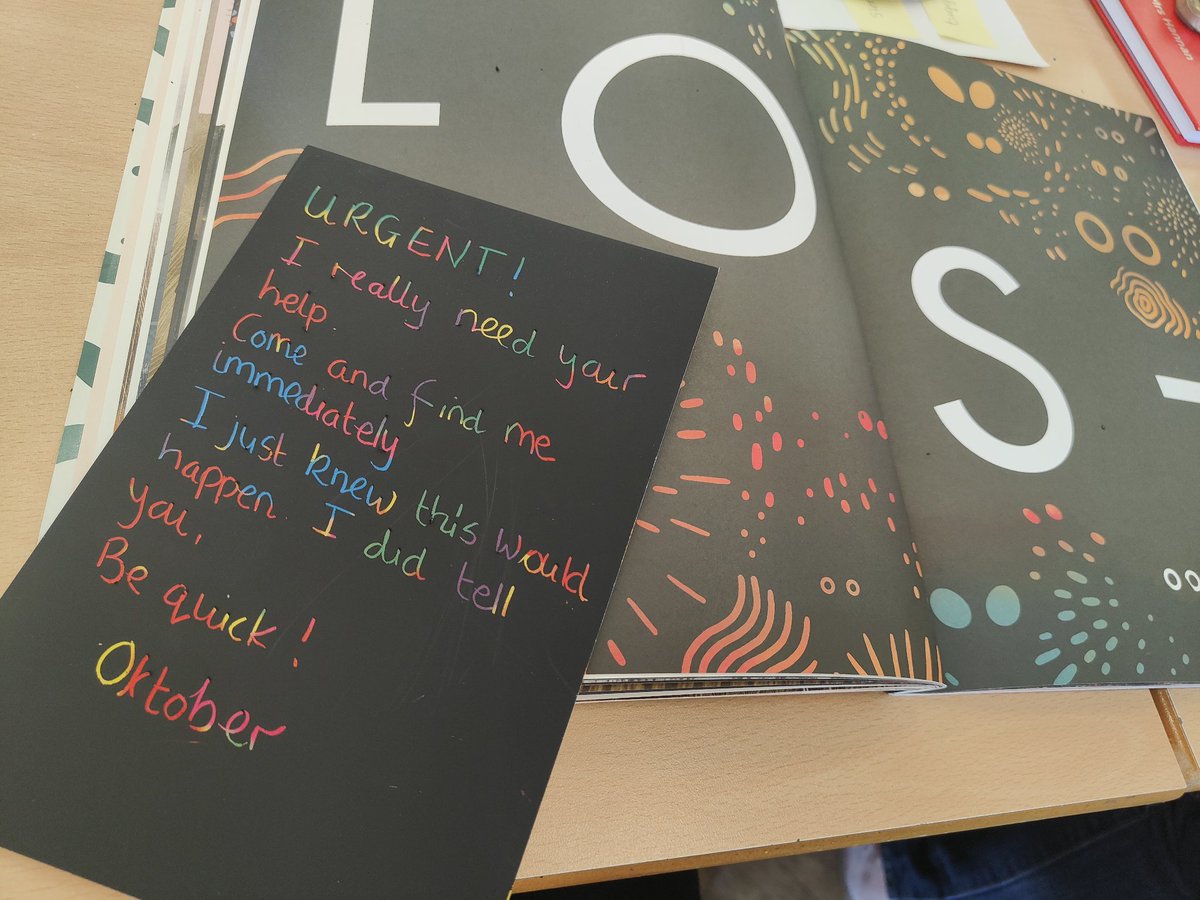 URGENT!
I really need your
help.
Come and find me
immediately
I just knew this would
happen. I did tell
you,
Be quick!
Oktober
LOS-
Mrs Hannan